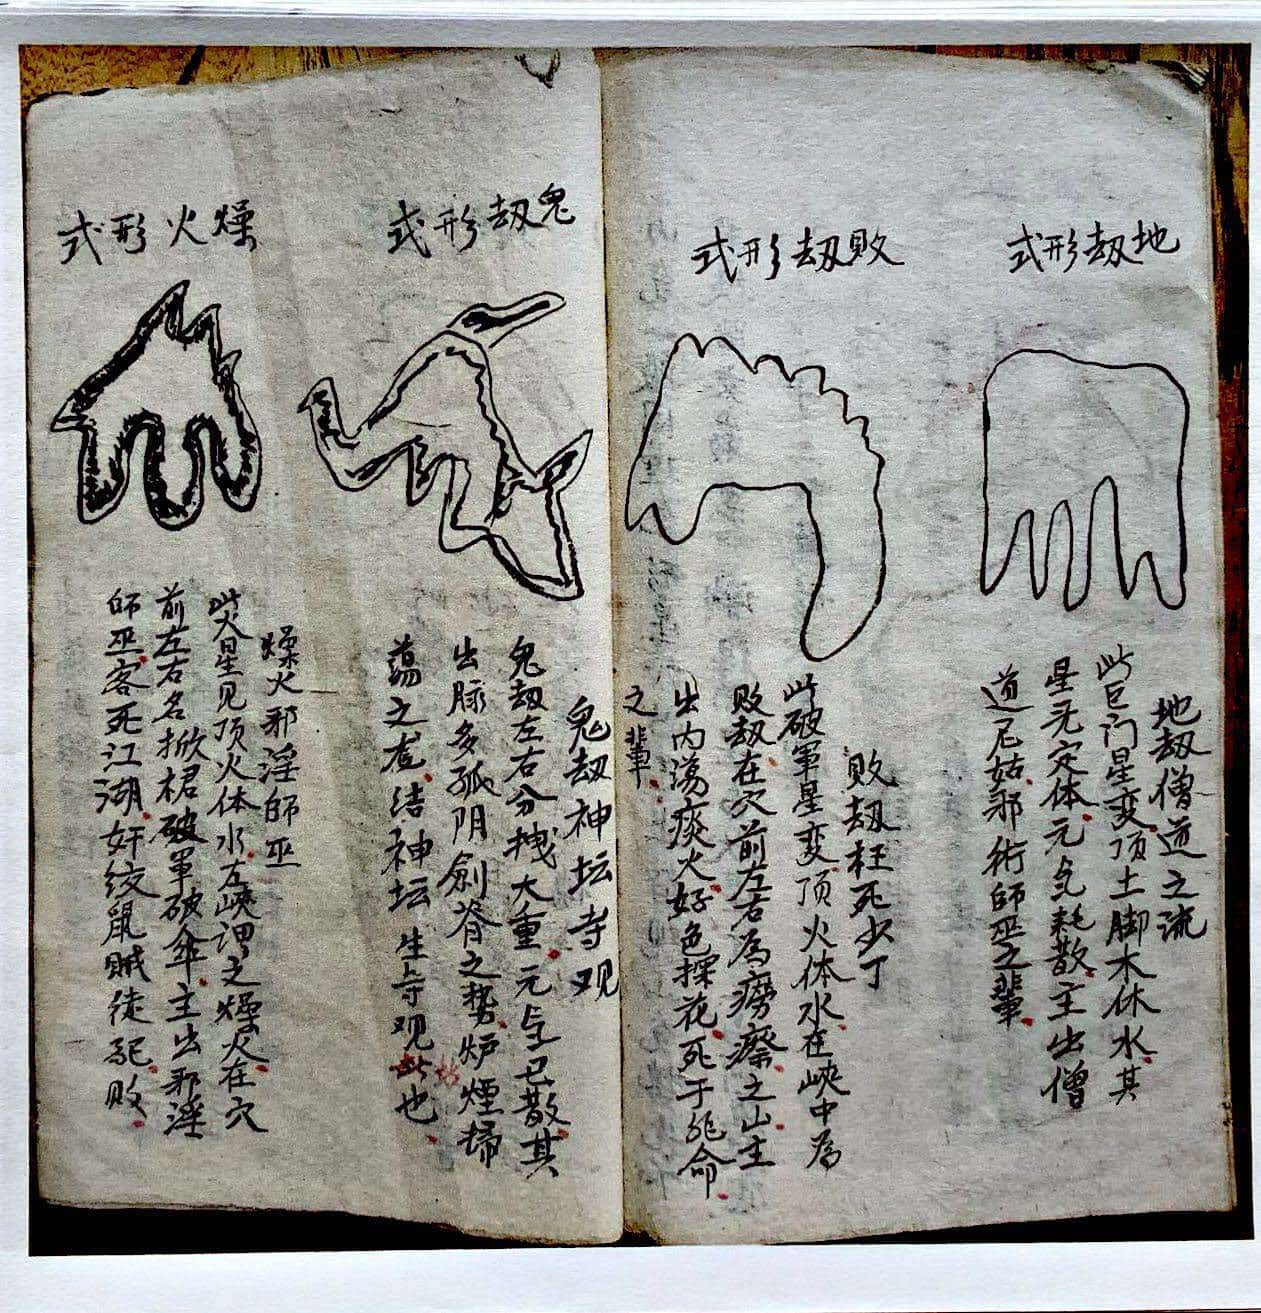 地刼形式
地刼僧道之流
此巨门星变顶土脚木体水其
星无定体元气耗散主出僧
道尼姑邪術師巫之輩
敗刼形式
敗刼枉死少丁
此破軍星变顶火体水在峽中為
敗刼在穴前左右為癆瘵之山主
出内荡痰火好色探花死于非命
之輩
鬼刼形式
鬼刼神坛寺观
鬼刼左右分拽大重元气已散其
出脉多孤阴劍脊之势炉煙掃
荡之龙结神坛生寺观此也
燥火形式
燥火邪淫師巫
此火星见顶火体水左峽谓之燥火在穴
前左右名掀裙破軍破伞主出邪淫
師巫客死江湖奸绞鼠贼徒配败